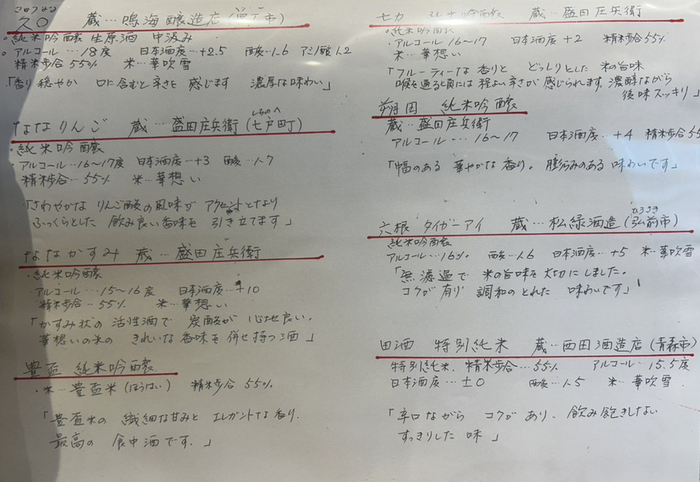 蔵…鳴海醸造店
純米吟醸 生原酒 中汲み
アルコール…18度 日本酒度…+2.5 酸…1.6 アミノ酸 1.2
精米歩合 55% 米…華吹雪
「香り穏やか 口に含むと辛さを感じます 濃厚な味わい」
ななりんご 蔵…盛田庄兵衛(七戸町)
しちのへ
純米吟醸
アルコール…16〜17度 日本酒度…+3 酸…1.7
精米歩合…55% 米…華想い
「さわやかな りんご酸の風味が アクセントとなり
ふっくらとした 飲み良い香味を 引き立てます」
ななかすみ 蔵…盛田庄兵衛
・純米吟醸
・アルコール…15〜16度 日本酒度…±10
精米歩合…55% 米…華想い
「かすみ状の活性酒で 炭酸が心地良い。
華想いの米の きれいな香味を併せ持つ酒」
豊盃 純米吟醸
・米…豊盃米(ほうはい) 精米歩合 55%
「豊盃米の 繊細な甘みと エレガントな香り。
最高の 食中酒です。」
七力 純米吟醸 蔵…盛田庄兵衛
・純米吟醸
・アルコール…16〜17 日本酒度+2 精米歩合55%
米…華想い
「フルーティーな香りと どっしりとした 米の旨味
喉を通る頃には程よい辛さが感じられます。濃醇ながら
後味スッキリ」
純米吟醸
蔵…盛田庄兵衛
アルコール…16〜17 日本酒度…+4 精米歩合5
「幅のある 華やかな香り。膨らみのある 味わいです」
六根 タイガーアイ 蔵…松緑酒造(弘前市)
ひろさき
純米吟醸
アルコール…16% 酸…1.6 日本酒度…+5 米…華吹雪
「無濾過で 米の旨味を大切にしました。
コクが有り 調和のとれた 味わいです」
田酒 特別純米 蔵…西田酒造店(青森市)
特別純米、精米歩合…55% アルコール…15.5度
日本酒度…±0 酸…1.5 米…華吹雪
「辛口ながら コクがあり、飲み飽きしない
すっきりした 味」